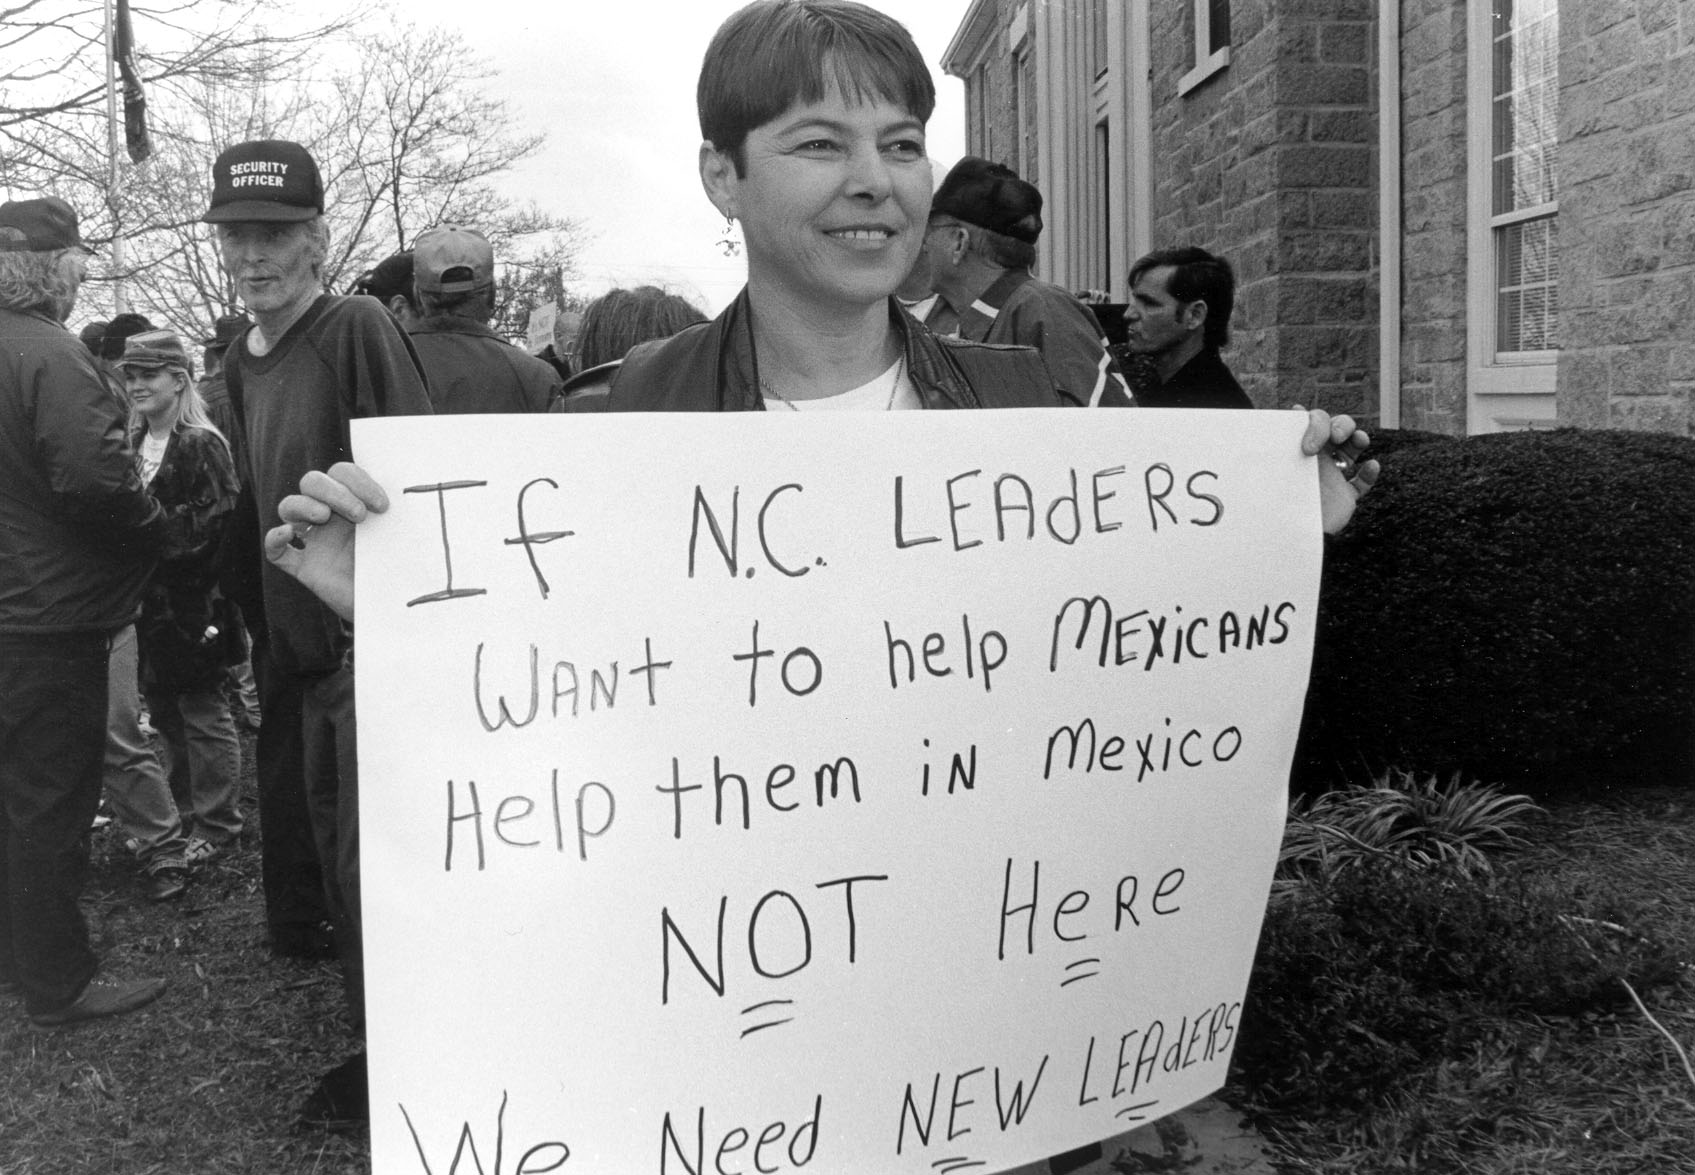 SECURITY
OFFICER
If N.C. LEAdERS
WANt to help MEXiCANS
Help them iN Mexico
NOT HeRe
We Need NEW LEAdERS